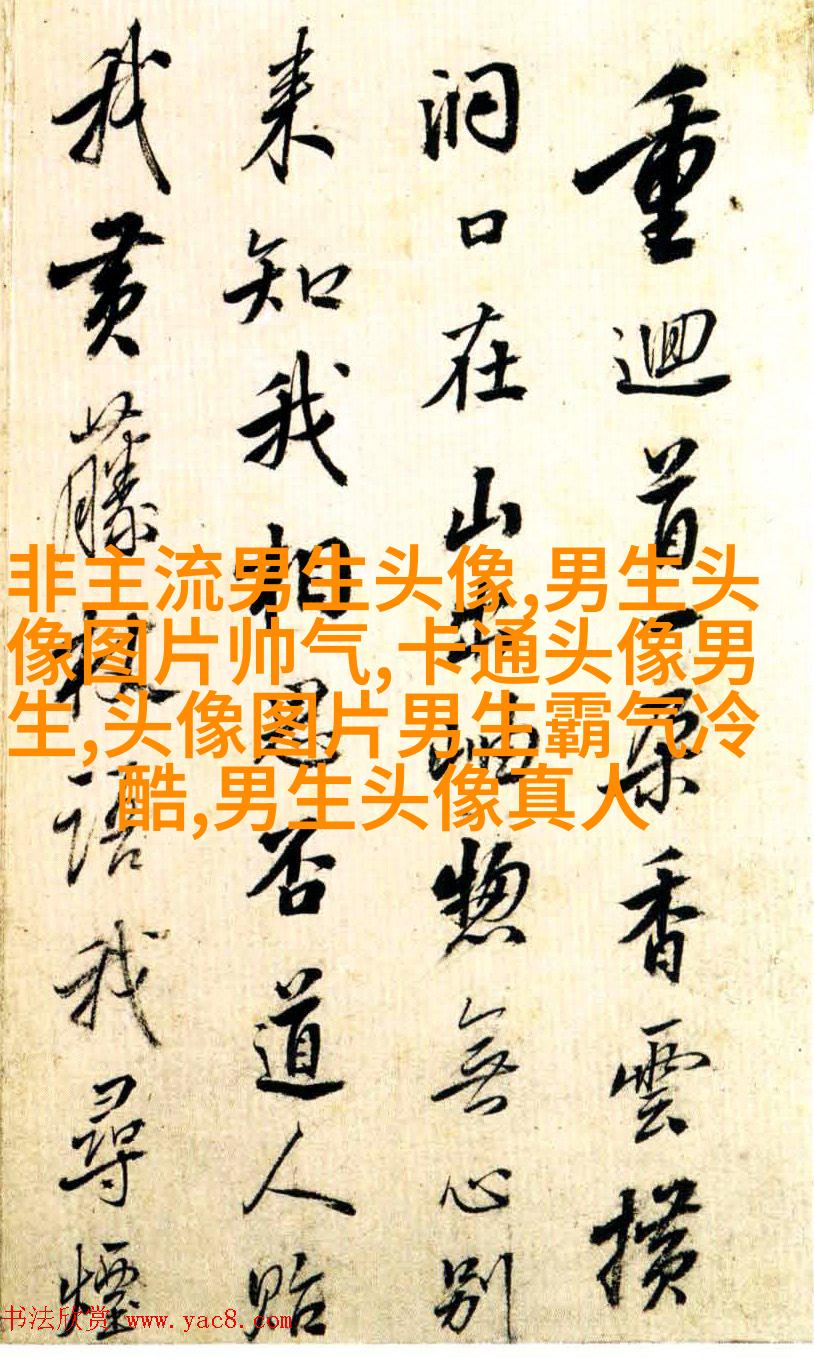 重迴首一朵香雲
洞口在山岫惣無心别
来知我相思否道人貽
我黄藤語我尋煙
非主流男生头像,男生头
像图片帅气,卡通头像男
生,头像图片男生霸气冷
酷,男生头像真人
书法欣赏 www.yac8.com